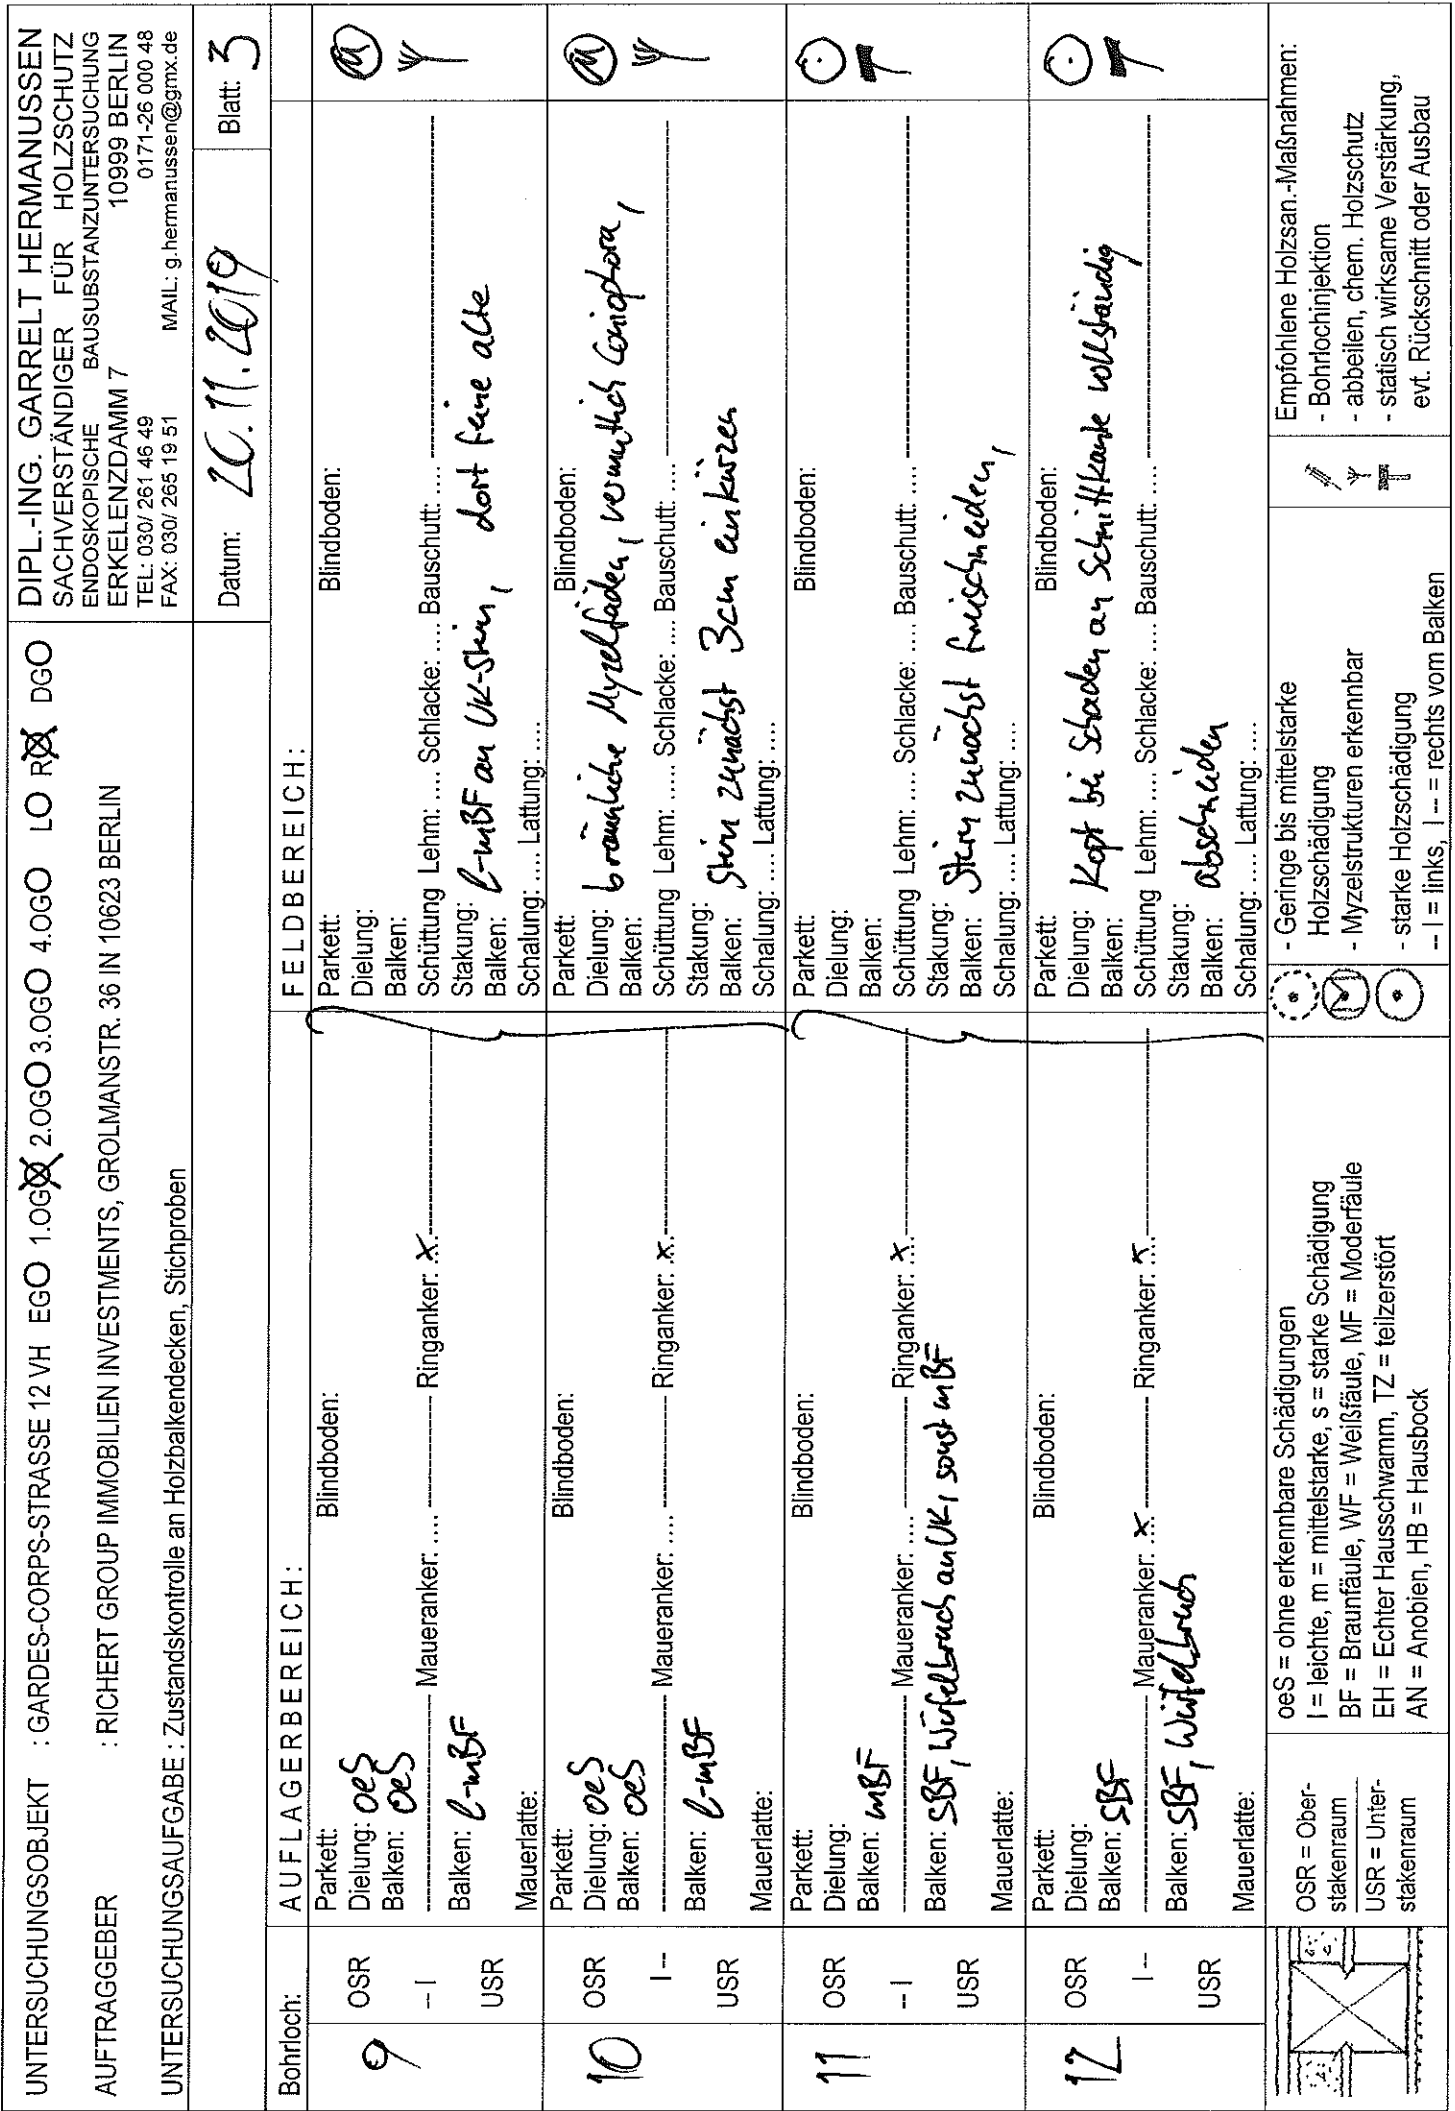 UNTERSUCHUNGSOBJEKT : GARDES-CORPS-STRASSE 12 VH EGO 1.OGO 2.OGO 3.OGO 4.OGO LO RO DGO
AUFTRAGGEBER : RICHERT GROUP IMMOBILIEN INVESTMENTS, GROLMANSTR. 36 IN 10623 BERLIN
UNTERSUCHUNGSAUFGABE : Zustandskontrolle an Holzbalkendecken, Stichproben
DIPL.-ING. GARRELT HERMANUSSEN
SACHVERSTÄNDIGER FÜR HOLZSCHUTZ
ENDOSKOPISCHE BAUSUBSTANZUNTERSUCHUNG
ERKELENZDAMM 7 10999 BERLIN
TEL: 030/ 261 46 49 0171-26 000 48
FAX: 030/ 265 19 51 MAIL: g.hermanussen@gmx.de
Datum: 20.11.2019 Blatt: 3
Bohrloch: AUFLAGERBEREICH: FELDBEREICH:
9
OSR
-- I
USR
Parkett: Blindboden:
Dielung: oeS
Balken: oeS
Maueranker: .... Ringanker: .x.
Balken: l-mBF
Mauerlatte:
Parkett: Blindboden:
Dielung:
Balken:
Schüttung Lehm: .... Schlacke: .... Bauschutt: ....
Stakung: l-mBF an UK-Stirn, dort feine alte
Balken:
Schalung: .... Lattung: ....
M
10
OSR
I --
USR
Parkett: Blindboden:
Dielung: oeS
Balken: oeS
Maueranker: .... Ringanker: .x.
Balken: l-mBF
Mauerlatte:
Parkett: Blindboden:
Dielung: bräunliche Myzelfäden, vermutlich Coniophora,
Balken:
Schüttung Lehm: .... Schlacke: .... Bauschutt: ....
Stakung: Stirn zunächst 3cm einkürzen
Balken:
Schalung: .... Lattung: ....
M
11
OSR
-- I
USR
Parkett: Blindboden:
Dielung:
Balken: mBF
Maueranker: .... Ringanker: .x.
Balken: sBF, Würfelbruch an UK, sonst mBF
Mauerlatte:
Parkett: Blindboden:
Dielung:
Balken:
Schüttung Lehm: .... Schlacke: .... Bauschutt: ....
Stakung:
Balken: Stirn zunächst freischneiden,
Schalung: .... Lattung: ....
12
OSR
I --
USR
Parkett: Blindboden:
Dielung:
Balken: sBF
Maueranker: .x. Ringanker: .x.
Balken: sBF, Würfelbruch
Mauerlatte:
Parkett: Blindboden:
Dielung: Kopf bei Schaden an Schnittkante vollständig
Balken:
Schüttung Lehm: .... Schlacke: .... Bauschutt: ....
Stakung: abschneiden
Balken:
Schalung: .... Lattung: ....
OSR = Ober-
stakenraum
USR = Unter-
stakenraum
oeS = ohne erkennbare Schädigungen
l = leichte, m = mittelstarke, s = starke Schädigung
BF = Braunfäule, WF = Weißfäule, MF = Moderfäule
EH = Echter Hausschwamm, TZ = teilzerstört
AN = Anobien, HB = Hausbock
- Geringe bis mittelstarke
Holzschädigung
- Myzelstrukturen erkennbar
- starke Holzschädigung
-- I = links, I -- = rechts vom Balken
Empfohlene Holzsan.-Maßnahmen:
- Bohrlochinjektion
- abbeilen, chem. Holzschutz
- statisch wirksame Verstärkung,
evt. Rückschnitt oder Ausbau